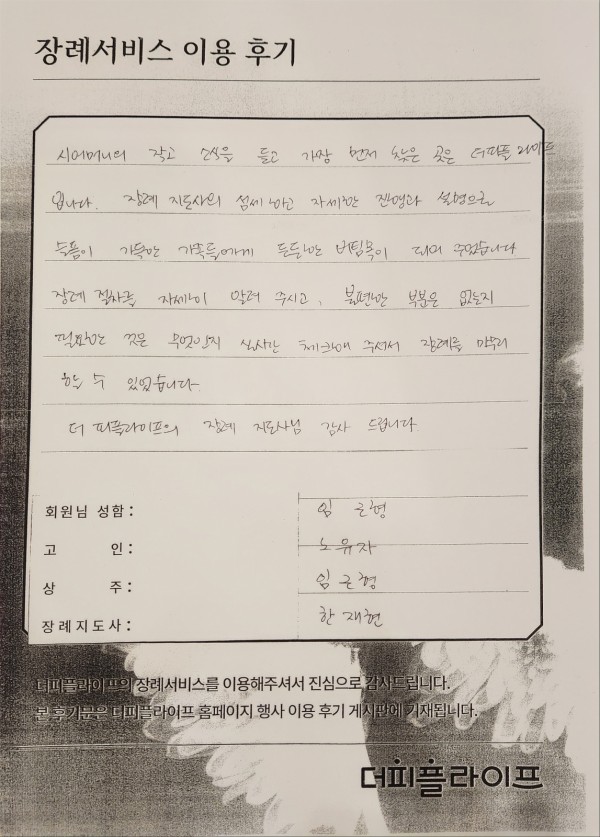 장례서비스 이용 후기
시어머니의 작고 소식을 듣고 가장 먼저 찾은 곳은 더피플 라이프
입니다. 장례 지도사의 섬세하고 자세한 진행과 설명으로
슬픔이 가득한 가족들에게 든든한 버팀목이 되어 주었습니다
장례 절차를 자세히 알려 주시고, 불편한 부분은 없는지
필요한 것은 무엇인지 실시간 체크해 주셔서 장례를 마무리
할 수 있었습니다.
더 피플라이프의 장례 지도사님 감사 드립니다.
회원님 성함 : 임 근형
고 인 : 노유자
상 주 : 임 근형
장례지도사 : 한재현
더피플라이프의 장례서비스를 이용해주셔서 진심으로 감사드립니다.
본 후기문은 더피플라이프 홈페이지 행사 이용 후기 게시판에 기재됩니다.
더피플라이프